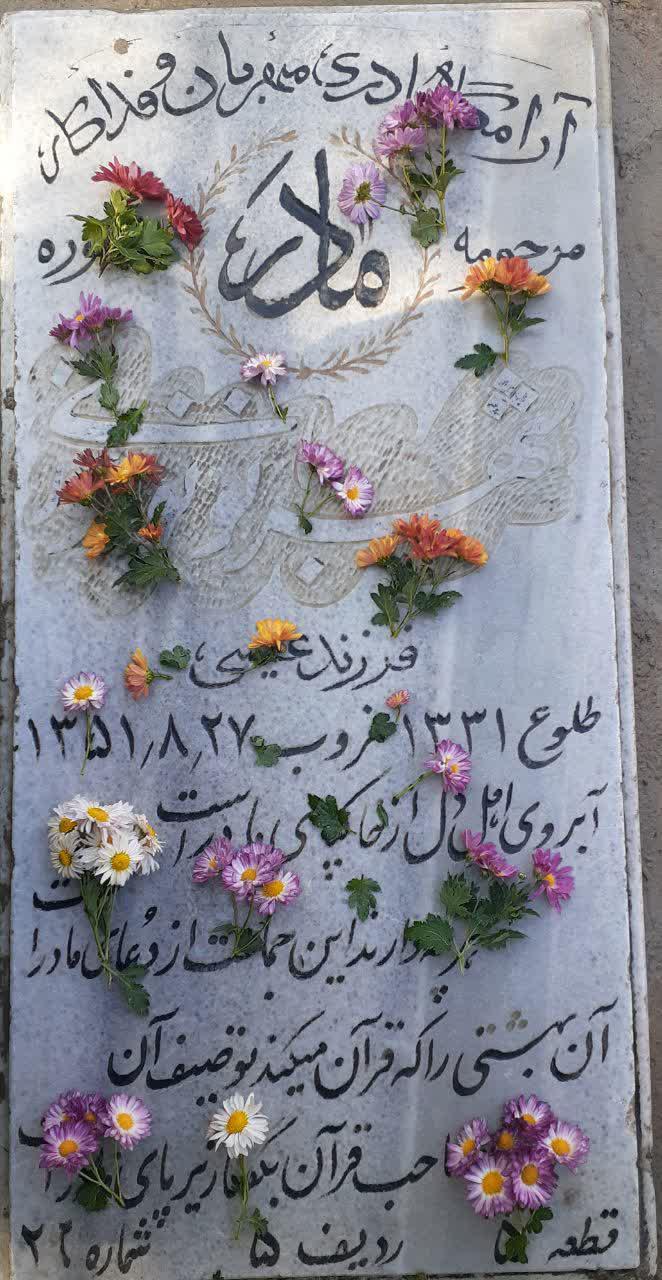 آرامگاه مادری، مهربان و فداکار
مادر
مرحومه
فرزند عیسی
طلوع ۱۳۳۱ غروب ۲۷٫۸٫۱۳۵۱
آبروی اهل دل از خاک پای مادر است
هرچه دارند این جماعت از دعای مادر است
آن بهشتی را که قرآن میکند توصیف آن
صاحب قرآن بگفتا زیر پای مادر است
قطعه ۵ ردیف ۱۵ شماره ۲۲